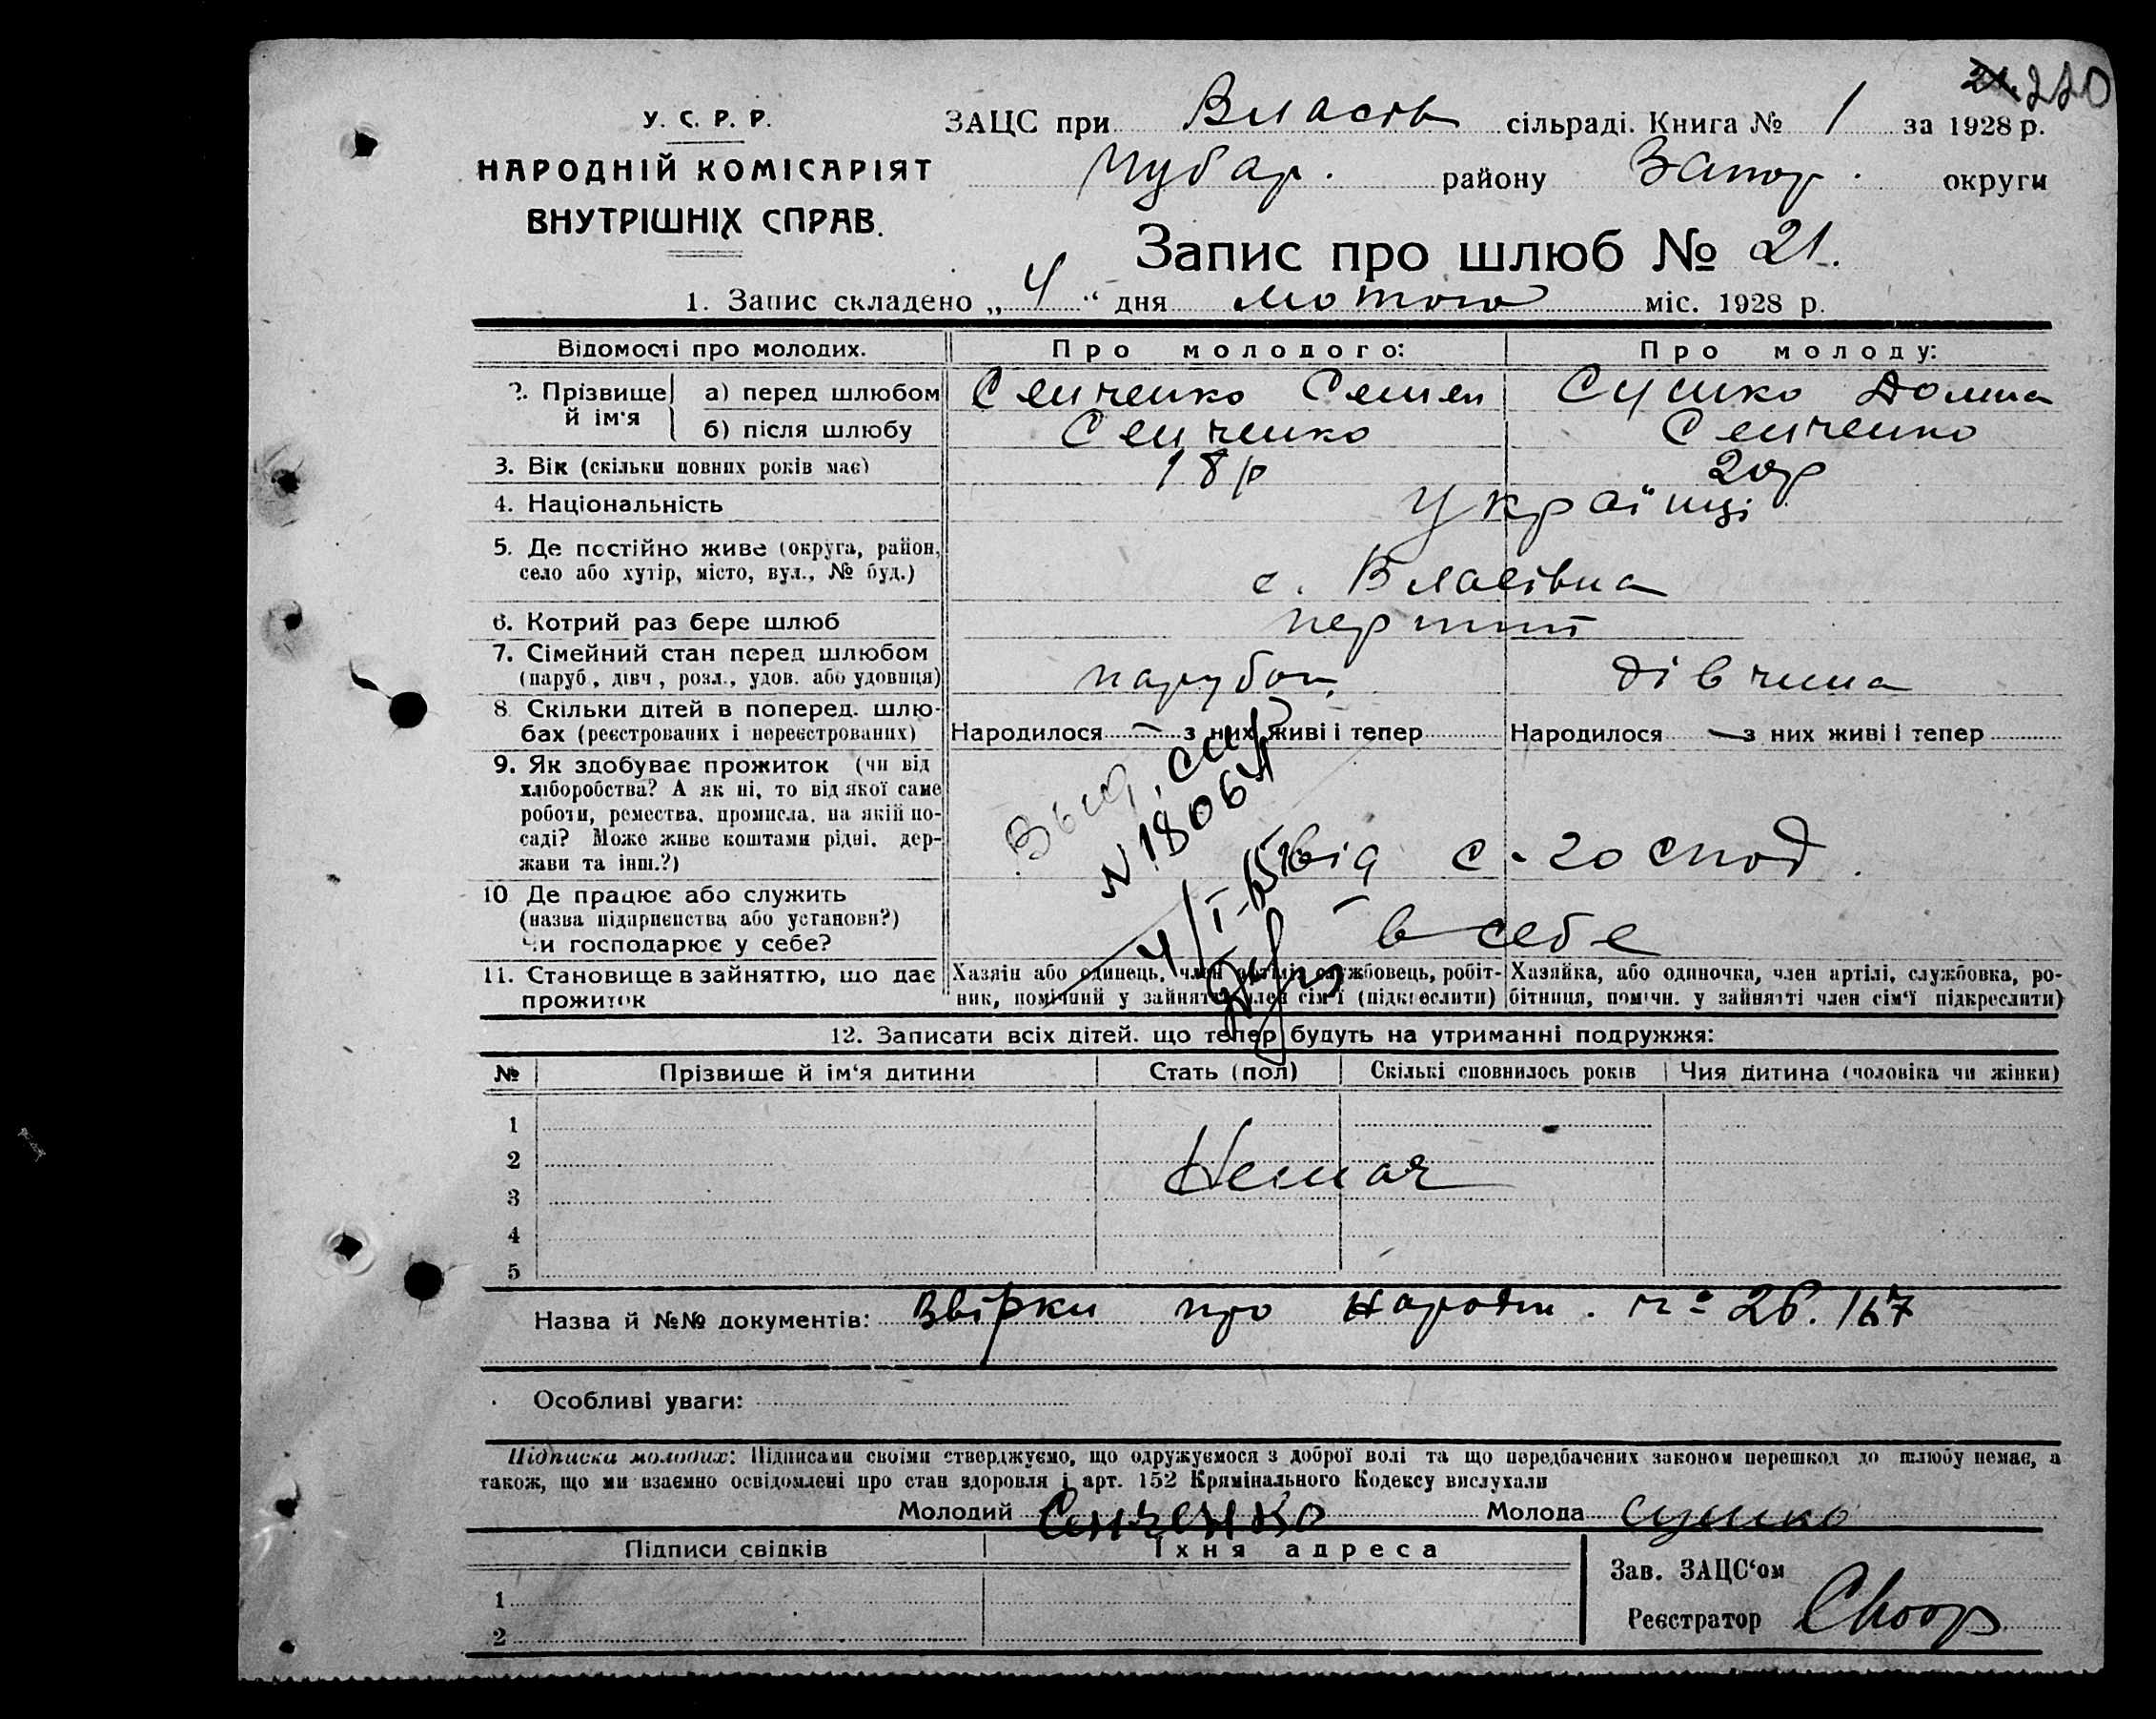 220
У. С. Р. Р.
НАРОДНІЙ КОМІСАРІЯТ
ВНУТРІШНІХ СПРАВ.
ЗАЦС при Власів сільраді. Книга № 1 за 1928 р.
Чубар. району Запор. округи
Запис про шлюб № 21.
1. Запис складено „ 4 “ дня лютого міс. 1928 р.
Відомості про молодих. Про молодого: Про молоду:
2. Прізвище й ім‘я а) перед шлюбом Сенченко Семен Сушко Домна
б) після шлюбу Сенченко Сенченко
3. Вік (скільки повних років має) 18 р 20 р
4. Національність Українці
5. Де постійно живе (округа, район,
село або хутір, місто, вул., № буд.) с. Власівка
6. Котрий раз бере шлюб перший
7. Сімейний стан перед шлюбом
(паруб., дівч., розл., удов. або удовиця) парубок дівчина
8. Скільки дітей в поперед. шлю-
бах (реєстрованих і нереєстрованих) Народилося — з них живі і тепер Народилося — з них живі і тепер
9. Як здобуває прожиток (чи від
хліборобства? А як ні, то від якої саме
роботи, ремества, промисла, на якій по-
саді? Може живе коштами рідні, дер-
жави та інш.?) від с-господ.
N 18064
10 Де працює або служить
(назва підприємства або установи?)
Чи господарює у себе? в себе
11. Становище в зайняттю, що дає
прожиток
Хазяїн або одинець, член артілі, службовець, робіт-
ник, помічний у зайнятті член сім‘ї (підкреслити)
Хазяйка, або одиночка, член артілі, службовка, ро-
бітниця, помічн. у зайнятті член сім‘ї підкреслити)
12. Записати всіх дітей. що тепер будуть на утриманні подружжя:
№ Прізвише й ім‘я дитини Стать (пол) Скількі сповнилось років Чия дитина (чоловіка чи жінки)
1
2 Немає
3
4
5
Назва й №№ документів: Ввірки про народж. № 26. 167
Особливі уваги:
Підписка молодих: Підписами своїми стверджуємо, що одружуємося з доброї волі та що передбачених законом перешкод до шлюбу немає, а
також, що ми взаємно освідомлені про стан здоровля і арт. 152 Крямінального Кодексу вислухали
Молодий Сенченко Молода Сушко
Підписи свідків Їхня адреса
Зав. ЗАЦС‘ом
1
Реєстратор
2